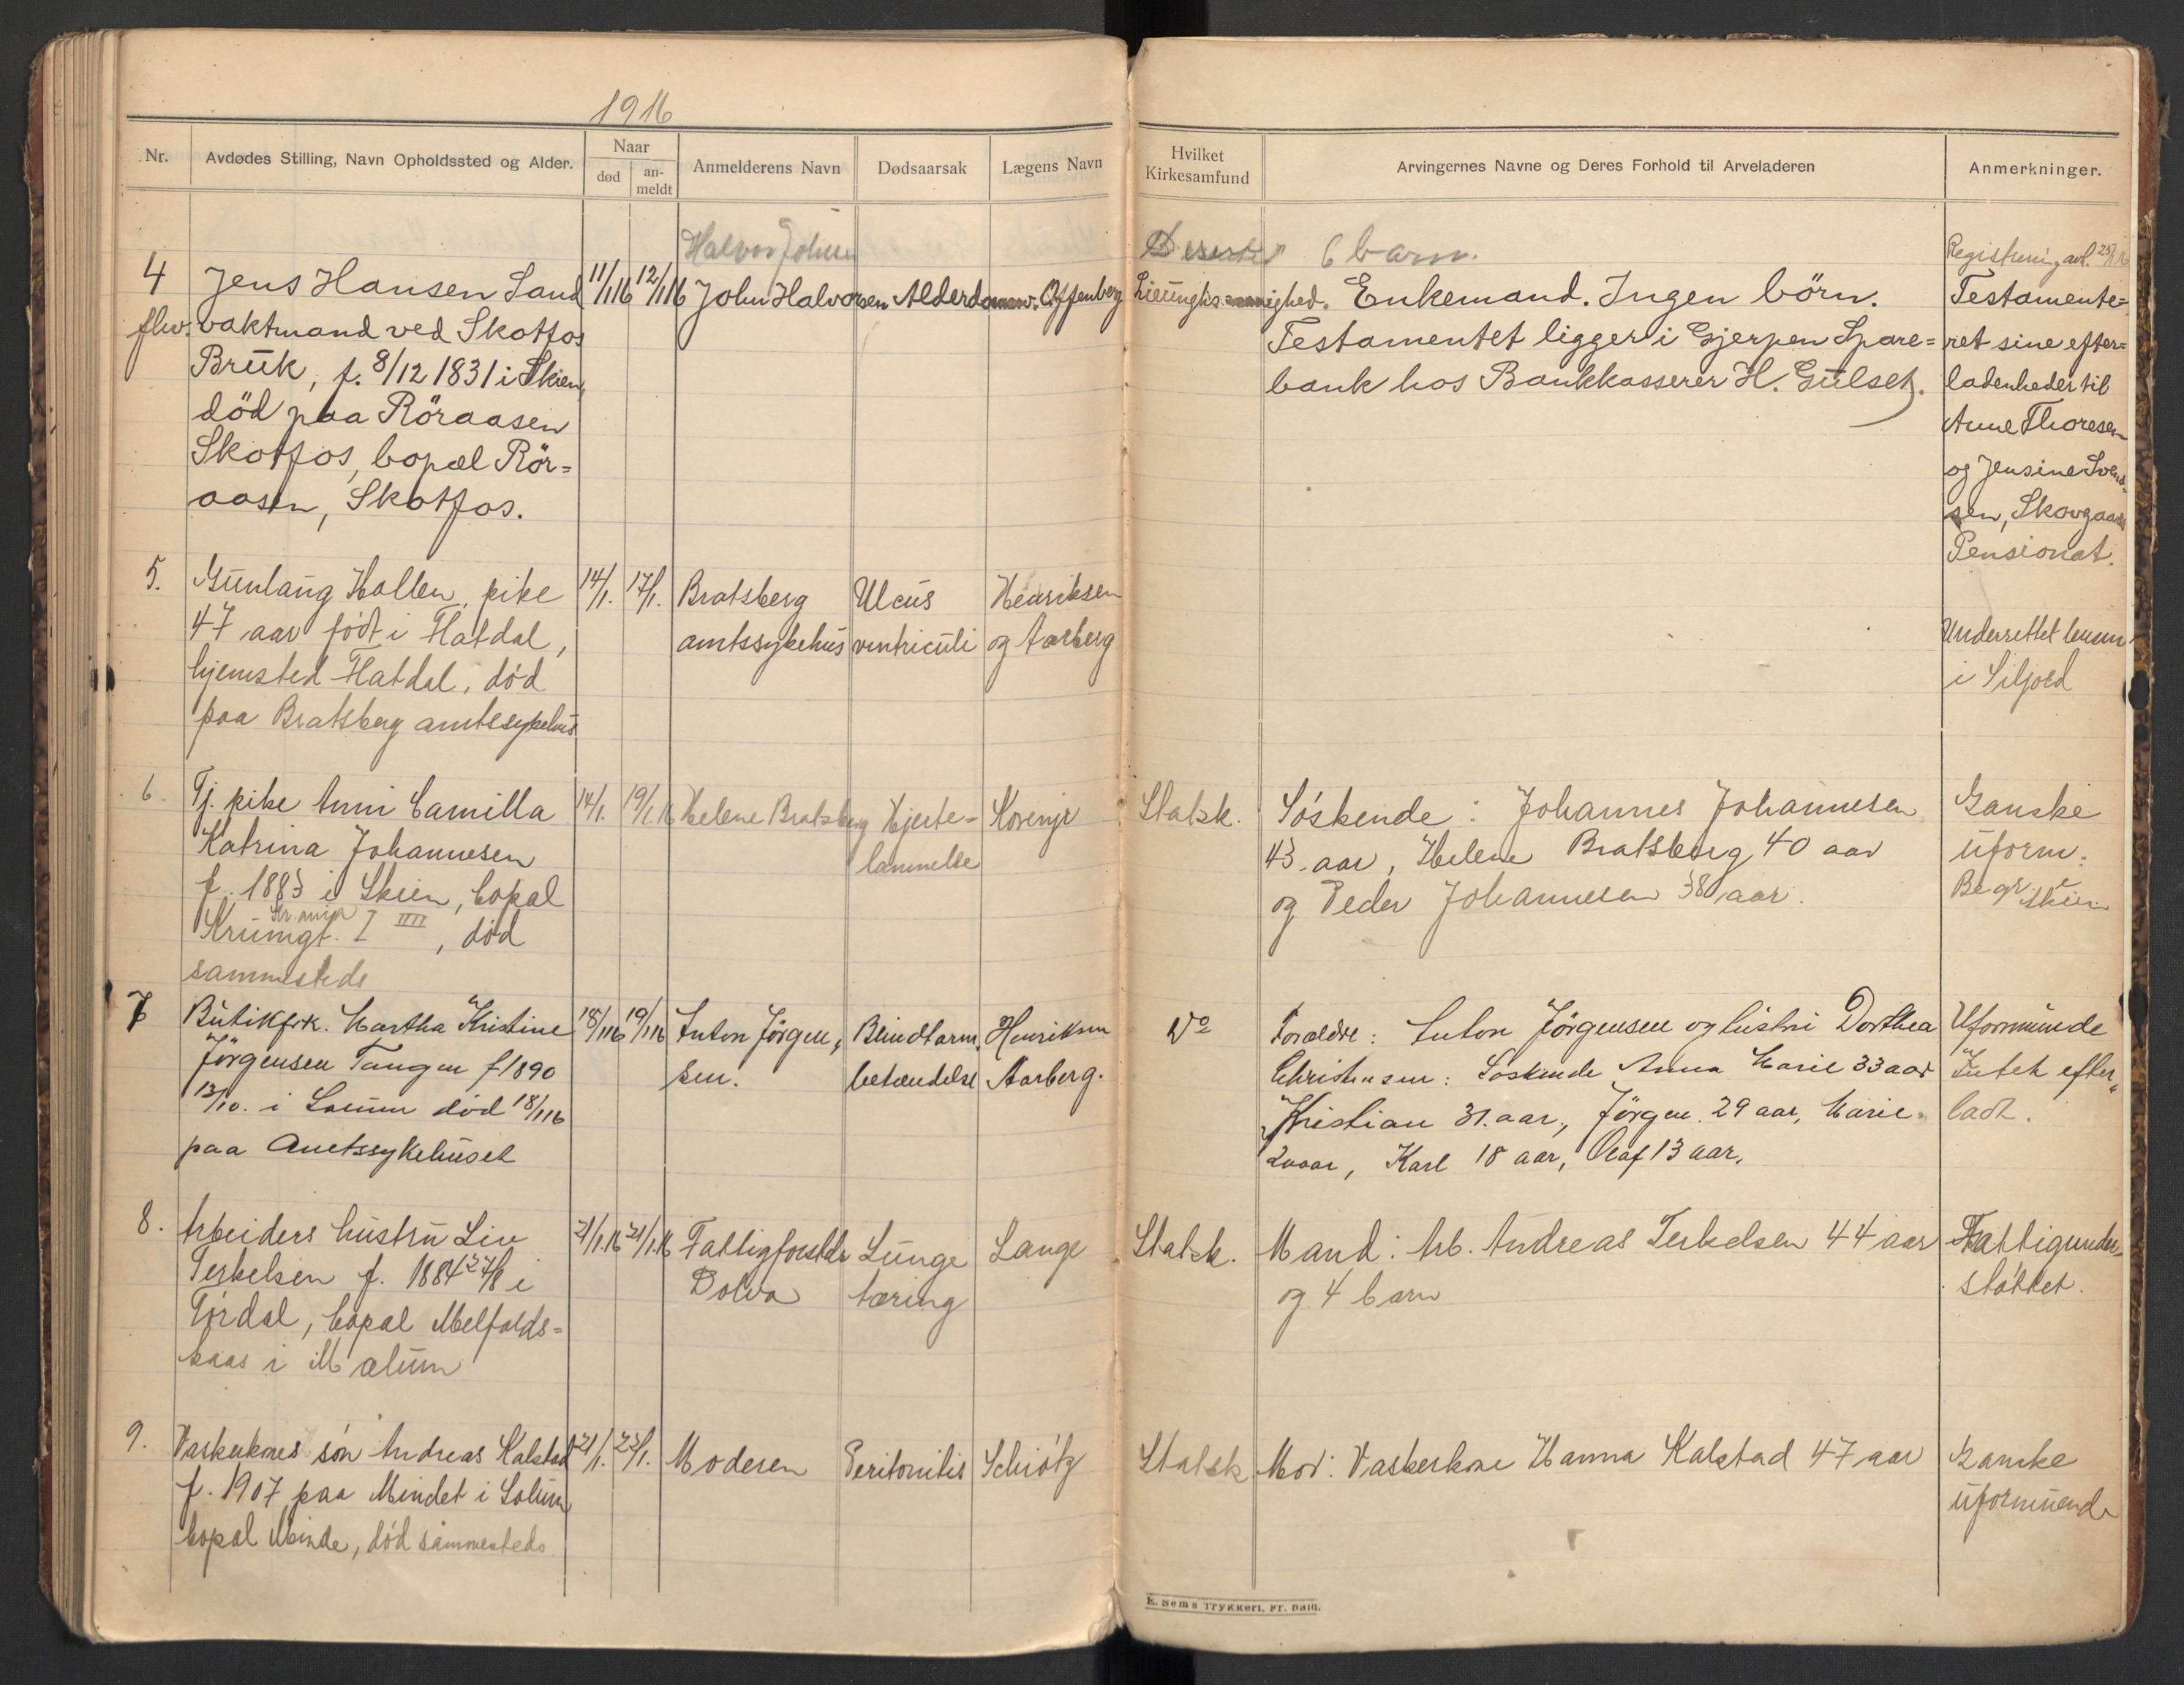 1916
Nr.
Avdødes Stilling, Navn Opholdssted og Alder.
Naar
død
an-
meldt
Anmelderens Navn
Dødsaarsak
Lægens Navn
Hvilket
Kirkesamfund
Arvingernes Navne og Deres Forhold til Arveladeren
Anmerkninger.
4
flw.
Jens Hansen Sand
vaktmand ved Skotfos
Bruk, f. 8/12 1831 i Skien,
död paa Röraasen
Skotfos, bopæl Rör=
aasen, Skotfos.
11/1 16
12/1 16
Halvor Johnsen
John Halvorsen
Alderdomsv.
Offenberg
6 barn.
Enkemand. Ingen börn.
Testamentet ligger i Gjerpen Spare=
bank hos Bankkasserer H. Gulset.
Registrering avl. 25/1 16
Testamente=
ret sine efter=
ladenheder til
Anne Thoresen
og Jensine Svend-
sen, Skovgaards
Pensionat.
5.
Gunlaug Hallen, pike
47 aar födt i Flatdal,
hjemsted Flatdal, död
paa Bratsberg amtssykehus
14/1.
17/1.
Bratsberg
amtssykehus
Ulcus
ventriculi
Henriksen
og Aarberg
Underrettet lensm.
i Siljord
6.
Tj. pike Anni Camilla
Katrina Johannesen
f. 1883 i Skien, bopæl
Krumgt. I IIII, död
sammesteds
14/1.
19/1.16
Helene Bratsberg
Hjerte=
lammelse
Statsk.
Söskende: Johannes Johannesen
43 aar, Helene Bratsberg 40 aar
og Peder Johannesen 38 aar.
Ganske
uform.
Begr. i
Skien
7
Butikfrk. Martha Kristine
Jörgensen Tangen f 1890
13/10. i Solum död 18/1 16
paa Amtssykehuset
18/1 16
19/1 16
Anton Jörgen,
sen.
Blindtarm,
betændelse
Henriksen
Aarberg.
Do
Forældre: Anton Jörgensen og hustru Dorthea
Christensen: Söskende Anna Marie 33 aar
Kristian 31 aar, Jörgen 29 aar, Marie
20 aar, Karl 18 aar, Olaf 13 aar.
Uformuende
Intet efter„
ladt.
8.
Arbeiders hustru Liv
Terkelsen f. 1884 27/8 i
Tördal, bopæl Melfalds=
kaas i Mælum
21/1.16
21/1.16
Fattigforstdr
Dolva
Lunge
tæring
Lange
Statsk.
Mand: Arb. Andreas Terkelsen 44 aar
og 4 barn
Fattigunder,
stöttet.
9.
Vaskekones sön Andreas Kalstad
f. 1907 paa Mindet i Solum,
bopæl Minde, död sammesteds
21/1.
22/1.
Moderen
Peritonitis
Schiötz
Statsk
Mor: Vaskerkone Hanna Kalstad 47 aar
Ganske
uformuende
E. Sems Trykkeri, Fr.hald.